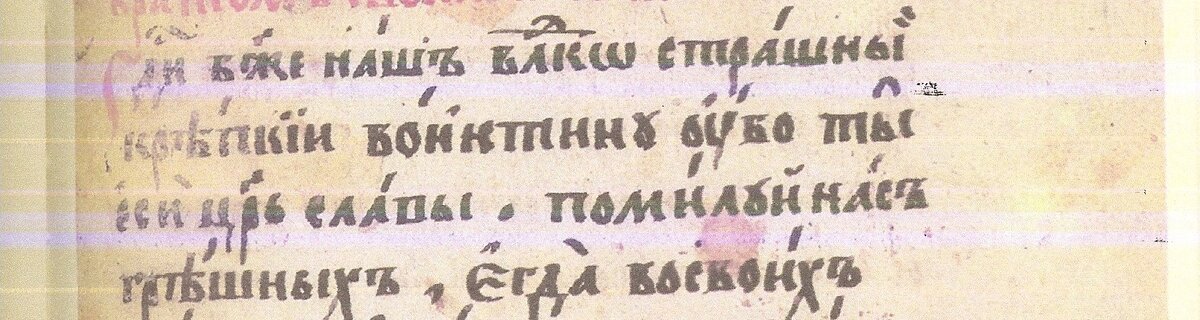 гдⷭ҇и бж҃е на́шъ влⷣкѡ стра́шныи
крѣ́пкїи во́истинну ᲂу҆́бо ты̑
еси̑ цр҃ь сла́вы . поми́луй на́съ
грѣ́шныхъ , є҆гда̀ восвои́хъ